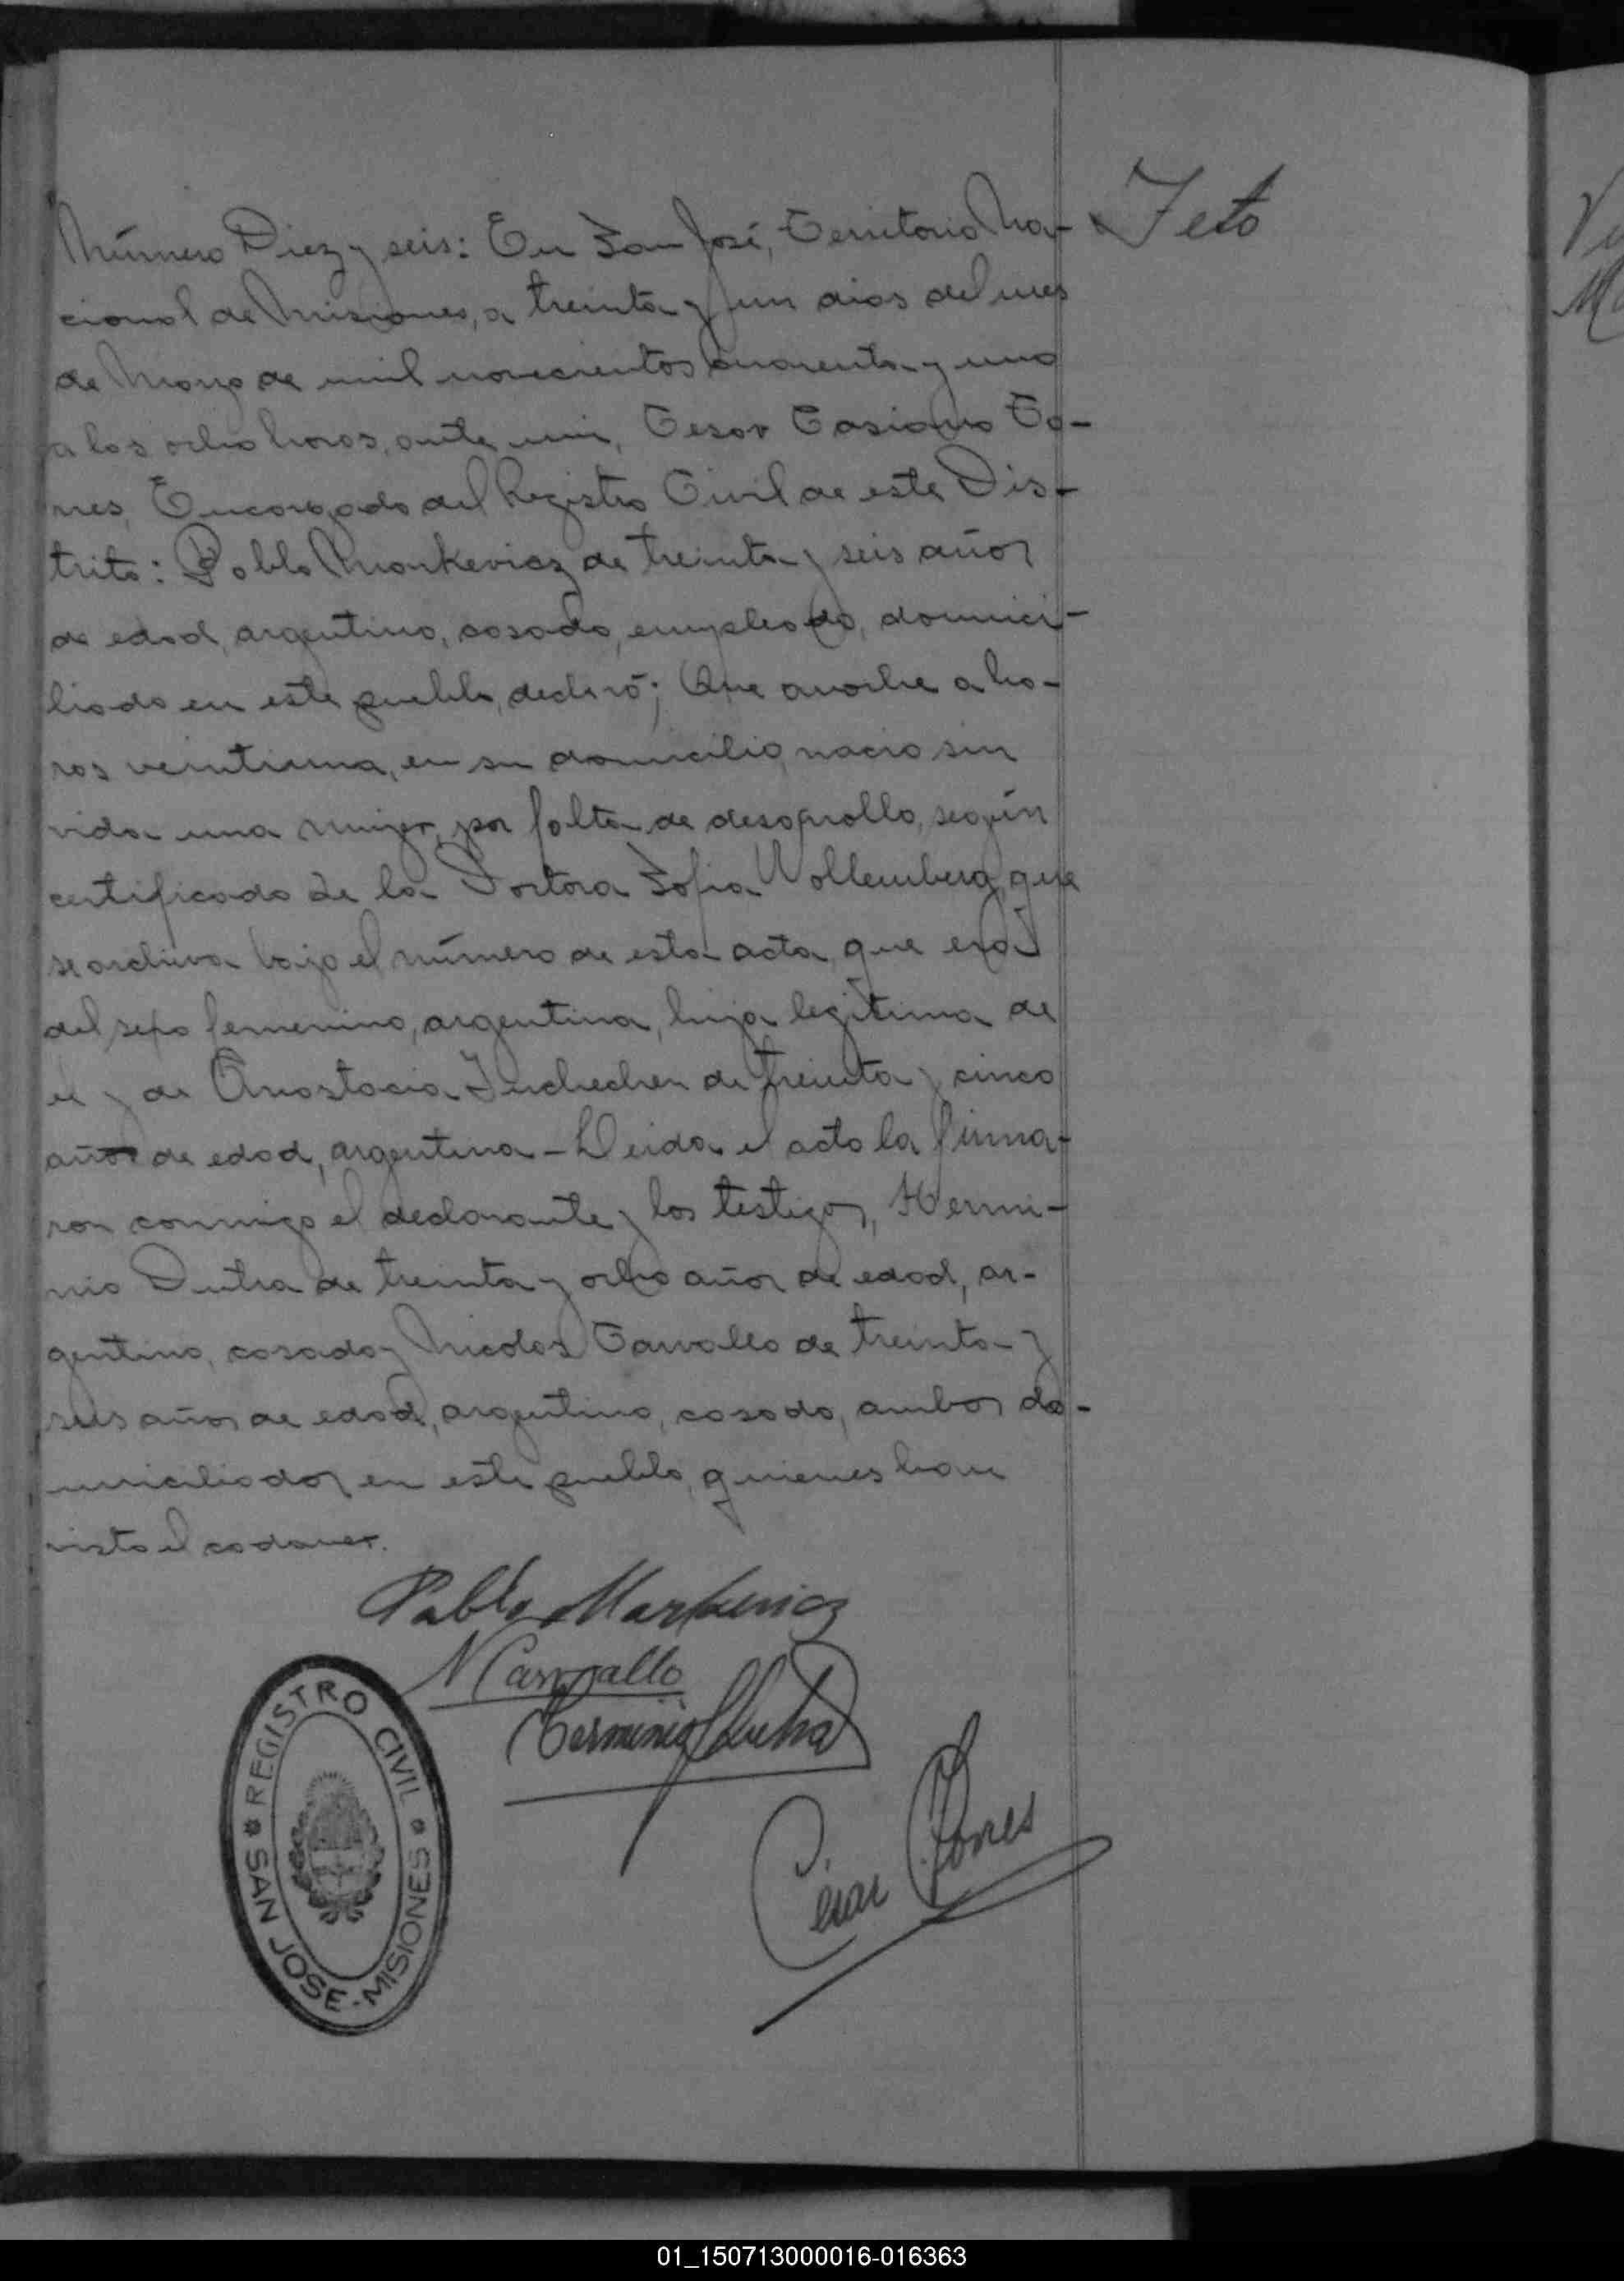 Número Diez y seis: En San José, Territorio Na-
cional de Misiones, a treinta y un dias del mes
de Marzo de mil novecientos cuarenta y uno
a las ocho horas, ante mi, Cesar Casiano To-
nes, Encargado del Registro Civil de este Dis-
trito: Pablo Markevicz de treinta y seis años
de edad, argentino, casado, empleado, domici-
liado en este pueblo, declaró; Que anoche a ho-
ras veintiuna, en su domicilio, nacio sin
vida una mujer, por falta de desarrollo, según
certificado de la Partera Sofia Wollemberg, que
se archiva bajo el número de esta acta, que era
del sexo femenino, argentina, hija legitima de
el y de Anastacia de treinta y cinco
años de edad, argentina - Leida el acta la firma-
ron conmigo el declarante y los testigos, Hermi-
nio Dutra de treinta y ocho años de edad, ar-
gentino, casado y Nicolas Carvallo de treinta y
seis años de edad, argentino, casado, ambos do-
miciliados en este pueblo, quienes han
visto el cadaver.
Feto
Pablo Markevicz
N Carvallo
Herminio Dutra
César Tones
REGISTRO CIVIL
SAN JOSE - MISIONES
01_150713000016-016363